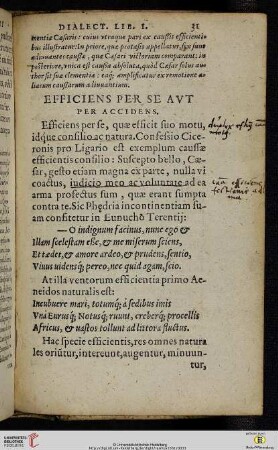 DIALECT. LIB. I. 31
mentia Cæsaris: cuius utraque pars ex caussis efficienti-
bus illustratur: In priore, quæ protasis appellatur, sex sunt
adiuuantes caussæ, quæ Cæsari victoriam comparant: in
posteriore, vnica est caussa absoluta, quòd Cæsar solus au-
thor sit suæ clementiæ: eaq; amplificatur ex remotione a-
liarum caussarum adiuuantium.
EFFICIENS PER SE AVT
PER ACCIDENS.
Efficiens per se, quæ efficit suo motu,
idque consilio ac natura. Confessio Cice-
ronis pro Ligario est exemplum caussæ
efficientis consilio: Suscepto bello, Cæ-
sar, gesto etiam magna ex parte, nulla vi
coactus, iudicio meo ac voluntate ad ea
arma profectus sum, quæ erant sumpta
contra te. Sic Phędria incontinentiam su-
am confitetur in Eunucho Terentij:
—O indignum facinus, nunc ego &
Illam scelestam esse, & me miserum sciens,
Et tædet, & amore ardeo, & prudens, sentio,
Viuus uidensq́; pereo, nec quid agam, scio.
At illa ventorum efficientia primo Æ-
neidos naturalis est:
Incubuere mari, totumq́; à sedibus imis
Vnà Eurusq́; Notusq́; ruunt, creberq́; procellis
Africus, & uastos tollunt ad littora fluctus.
Hac specie efficientis, res omnes natura
les oriūtur, intereunt, augentur, minuun-
tur,